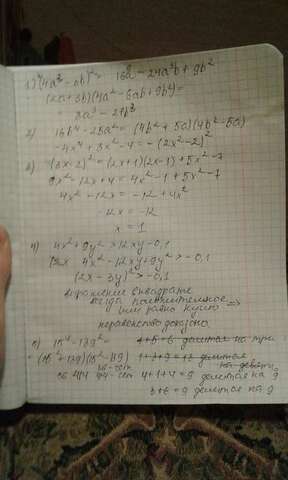 1) (4a³ - 3b)² = 16a⁶ - 24a³b + 9b²
(2a+3b)(4a² - 6ab + 9b²) =
= 8a³ - 27b³
2) 16b⁴ - 25a² = (4b² + 5a)(4b² - 5a)
-4x⁴ + 8x² - 4 = -(2x² - 2)²
3) (3x-2)² = (2x+1)(2x-1) + 5x² - 7
9x² - 12x + 4 = 4x² - 1 + 5x² - 7
4x² - 12x = -12 + 4x²
-12x = -12
x = 1
4) 4x² + 9y² > 12xy - 0,1
4x² - 12xy + 9y² > -0,1
(2x - 3y)² > -0,1
выражение в квадрате
всегда положительное
или равно нулю
неравенство доказано
делится на три
делится
на девять
4+1+4 = 9 делится на 9
делится на 9